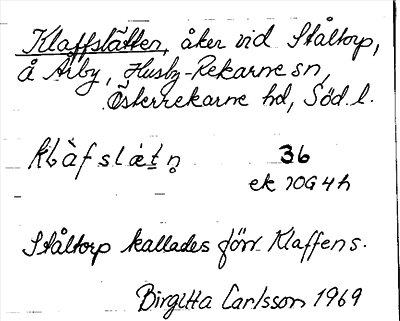 Klaffslätten, åker vid Ståltorp,
å Årby, Husby-Rekarne sn,
Österrekarne hd, Söd. l.
36
ek 10G 4h
Ståltorp kallades förr Klaffens.
Birgitta Carlsson 1969